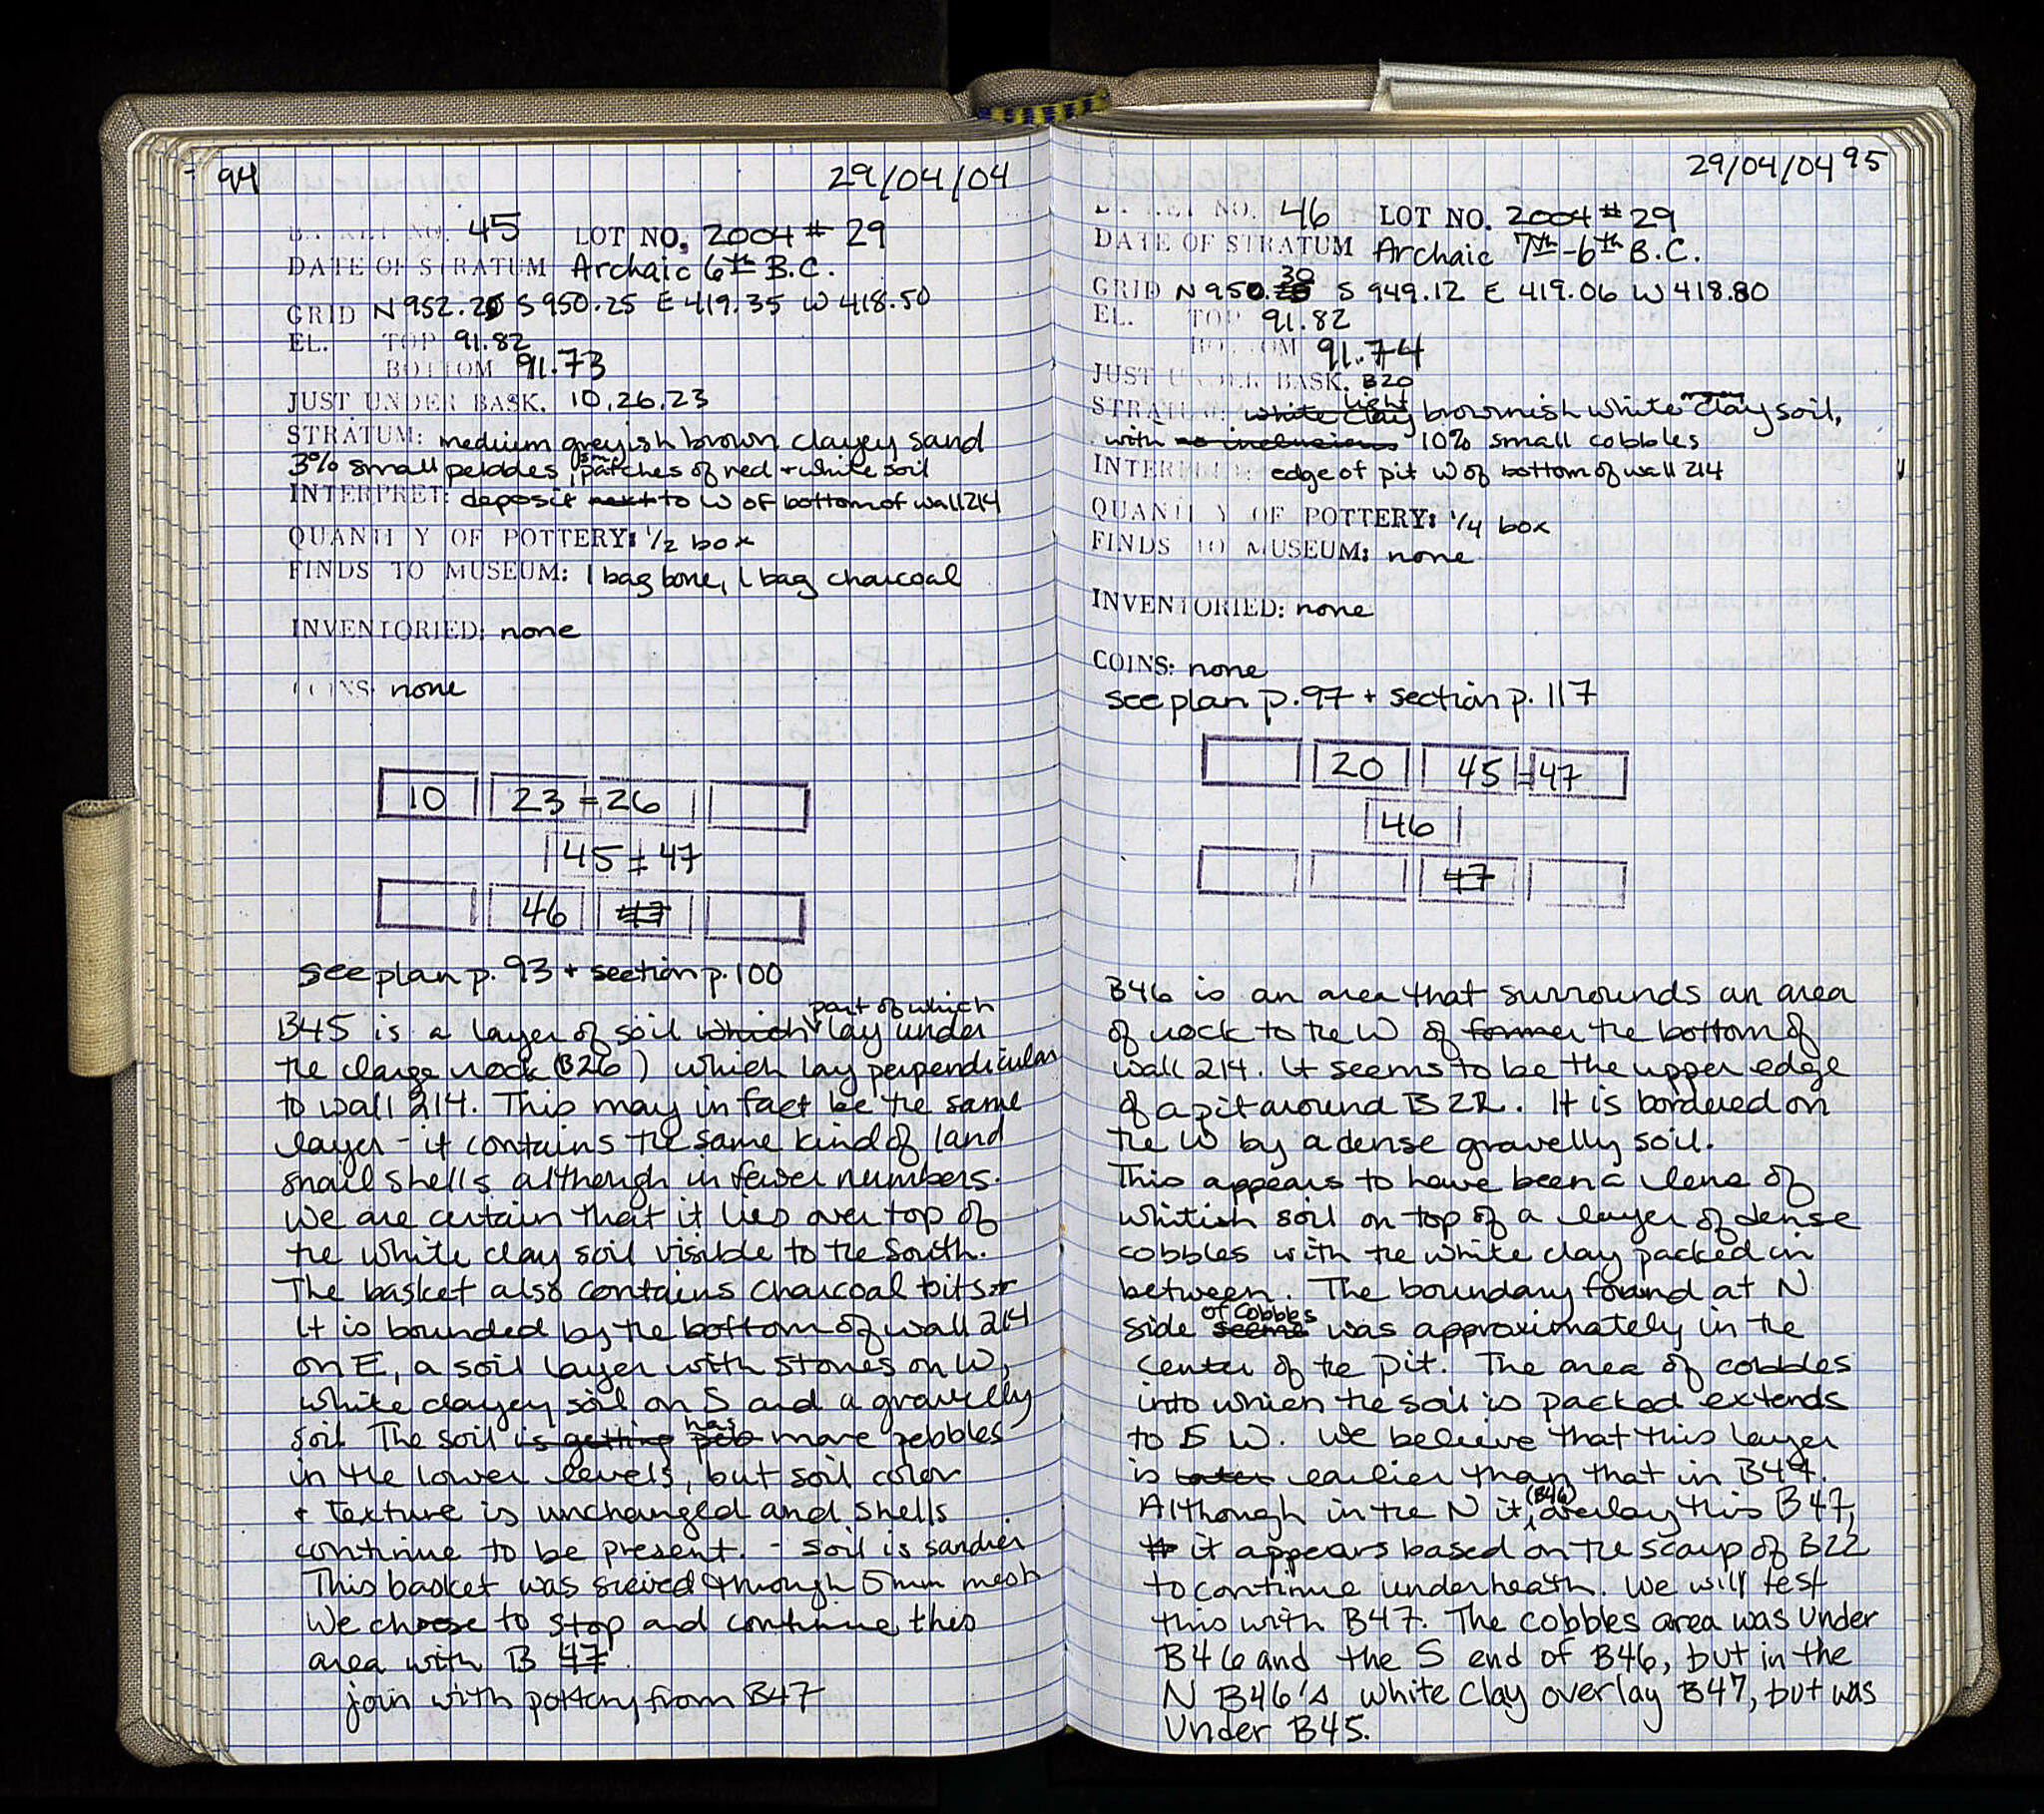 94
29/04/04
BASKET NO. 45 LOT NO. 2004 # 29
DATE OF STRATUM Archaic 6th B.C.
GRID N 952.25 S 950.25 E 419.35 W 418.50
EL. TOP 91.82
BOTTOM 91.73
JUST UNDER BASK. 10, 26, 23
STRATUM: medium greyish brown clayey sand
3% small pebbles, small patches of red + white soil
INTERPRET: deposit next to W of bottom of wall 214
QUANTITY OF POTTERY: 1/2 box
FINDS TO MUSEUM: 1 bag bone, 1 bag charcoal
INVENTORIED: none
COINS: none
10 23 = 26
45 = 47
46 47
see plan p. 93 + section p. 100
part of which
B45 is a layer of soil which lay under
the large rock (B26) which lay perpendicular
to wall 214. This may in fact be the same
layer - it contains the same kind of land
snail shells although in fewer numbers.
We are certain that it lies over top of
the white clay soil visible to the South.
The basket also contains charcoal bits +
It is bounded by the bottom of wall 214
on E, a soil layer with stones on W,
white clayey soil on S and a gravelly
soil The soil is getting has peb more pebbles
in the lower levels, but soil color
+ texture is unchanged and shells
continue to be present. - soil is sandier
This basket was sieved through 5mm mesh
We choose to stop and continue this
area with B 47.
join with pottery from B47
29/04/04 95
BASKET NO. 46 LOT NO. 2004 # 29
DATE OF STRATUM Archaic 7th-6th B.C.
30
GRID N 950. S 949.12 E 419.06 W 418.80
EL. TOP 91.82
BOTTOM 91.74
JUST UNDER BASK. B20
STRATUM: white clay light brownish white clay soil,
with no inclusions 10% small cobbles
INTERPRET: edge of pit W of bottom of wall 214
QUANTITY OF POTTERY: 1/4 box
FINDS TO MUSEUM: none
INVENTORIED: none
COINS: none
see plan p. 97 + section p. 117
20 45 = 47
46
47
B46 is an area that surrounds an area
of rock to the W of former the bottom of
wall 214. It seems to be the upper edge
of a pit around B22. It is bordered on
the W by a dense gravelly soil.
This appears to have been a lens of
whitish soil on top of a layer of dense
cobbles with the white clay packed in
between. The boundary found at N
side of cobbles seems was approximately in the
center of the pit. The area of cobbles
into which the soil is packed extends
to S W. We believe that this layer
is later earlier than that in B44.
Although in the N it (B46) overlay this B47,
it appears based on the scarp of B22
to continue underneath. We will test
this with B47. The cobbles area was under
B46 and the S end of B46, but in the
N B46's white clay overlay B47, but was
under B45.